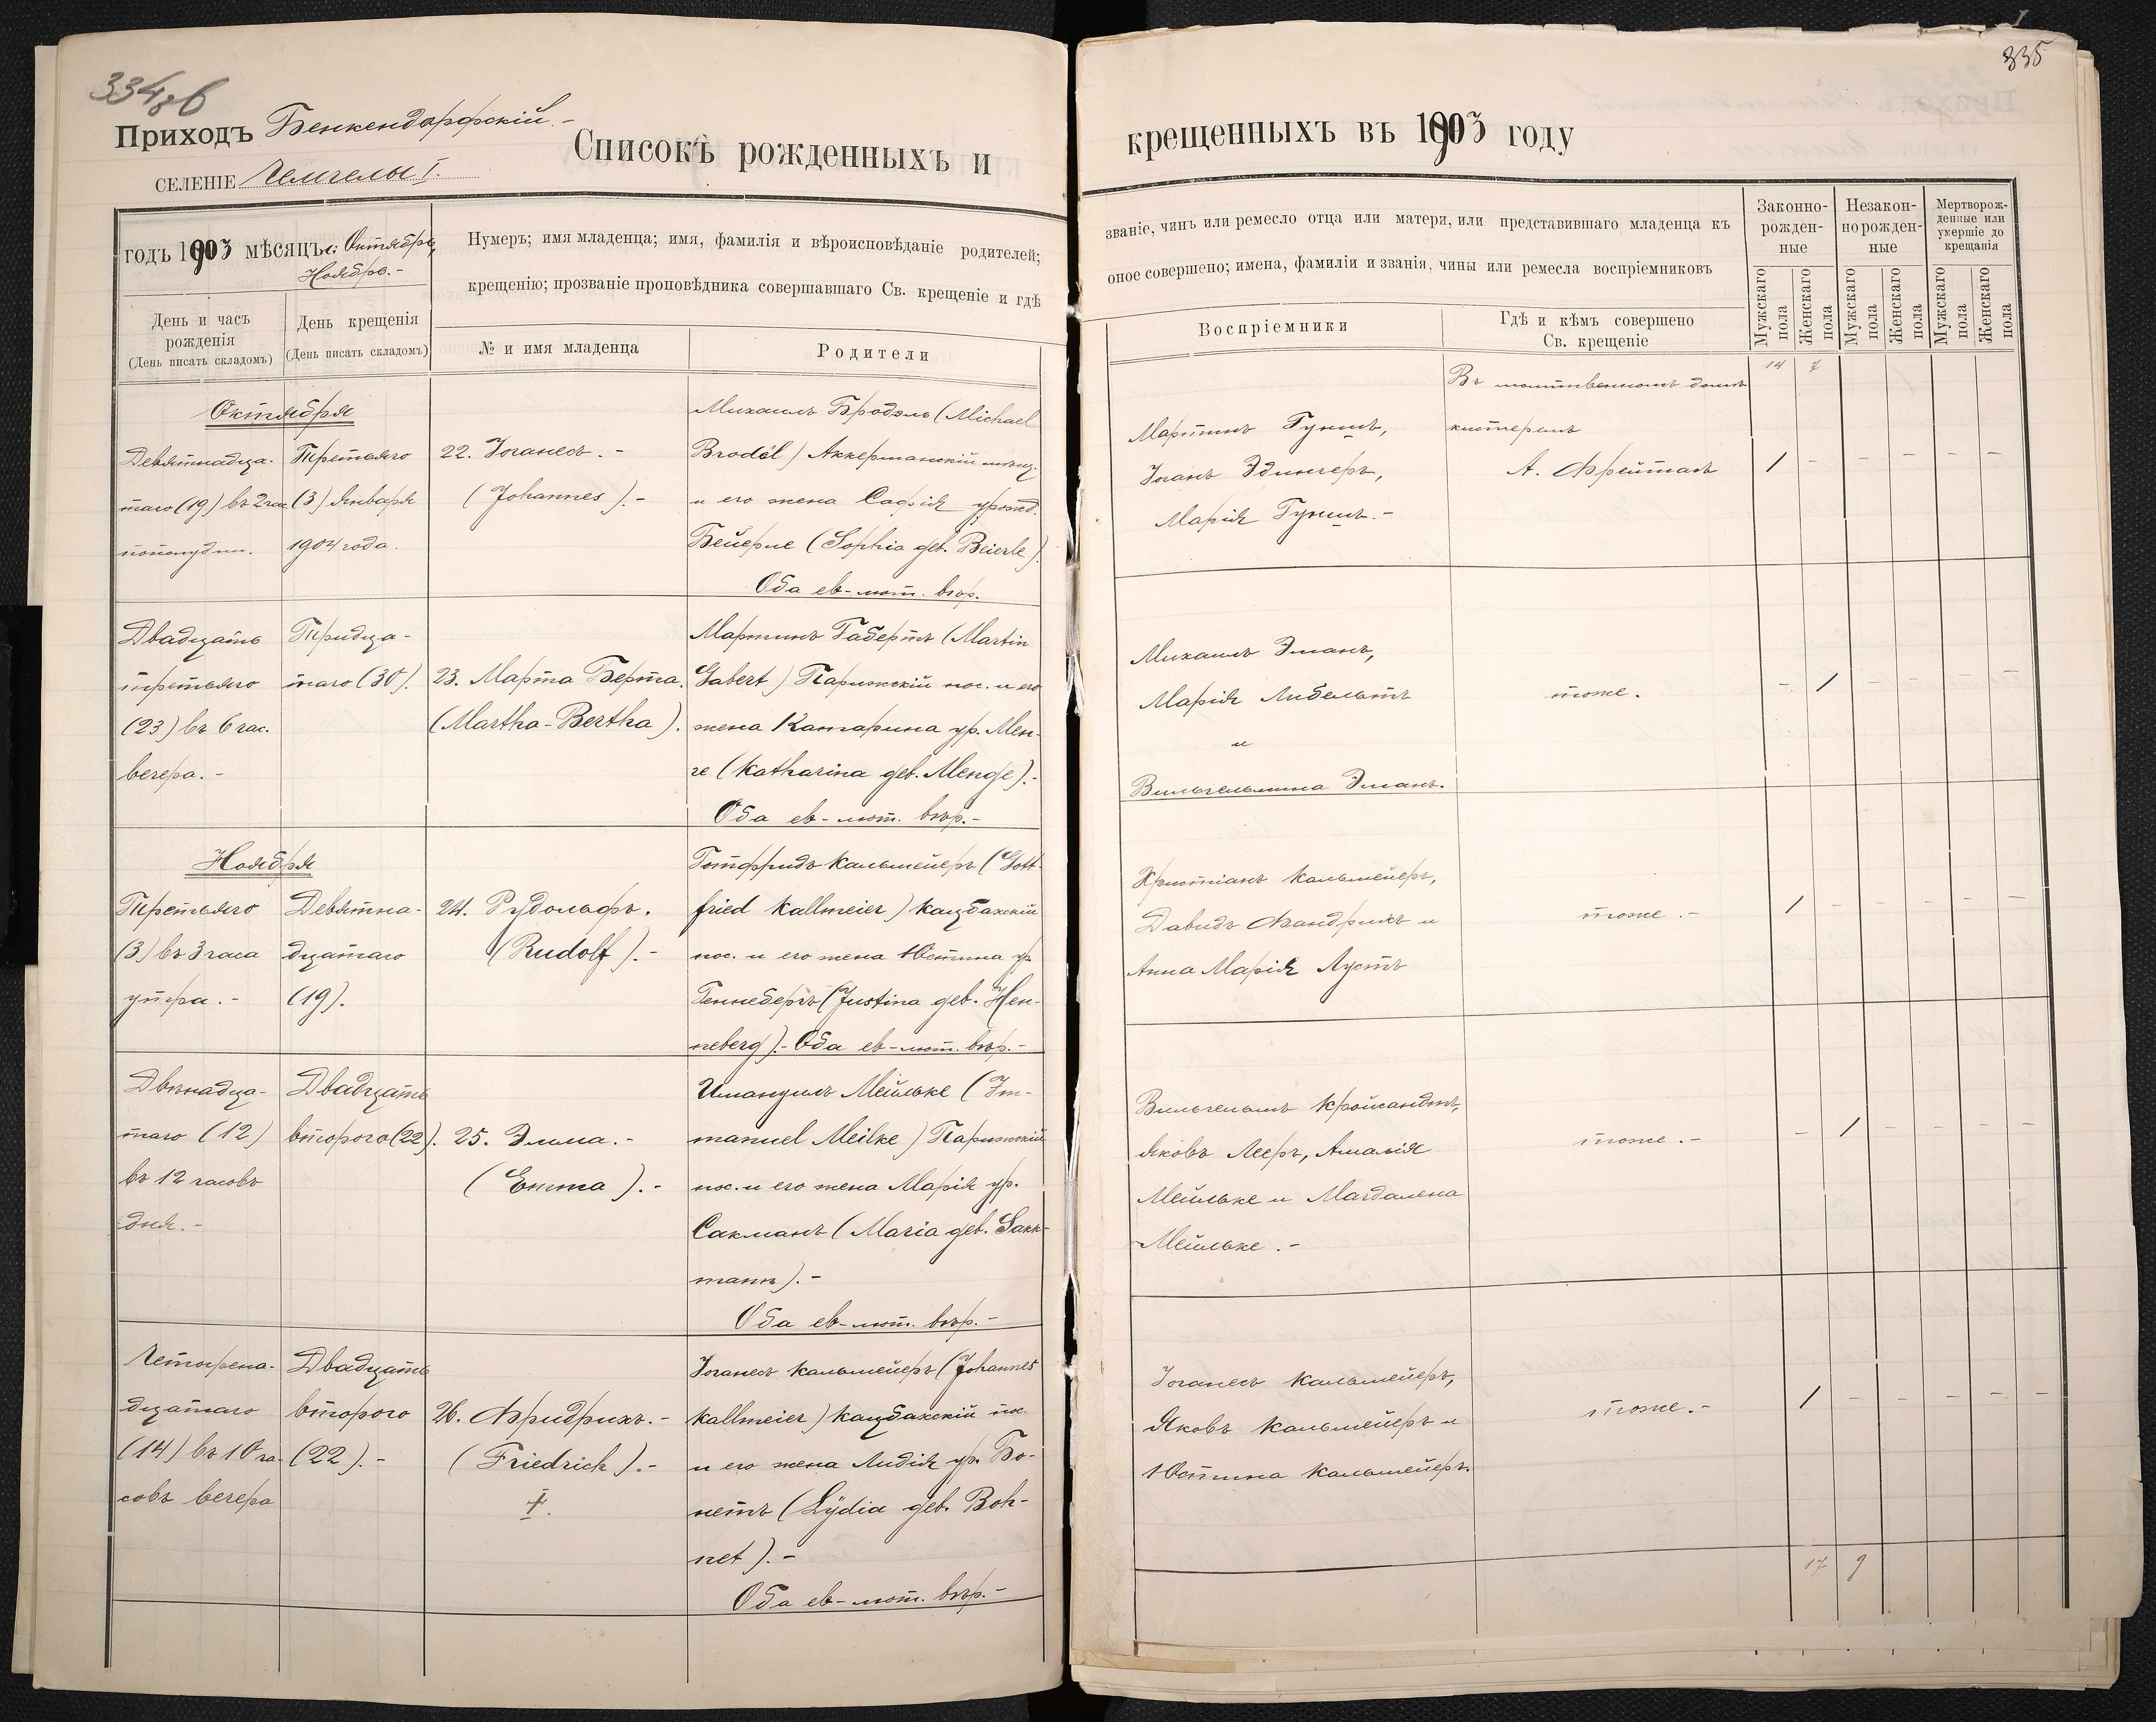 334 об
Приходъ Бенкендорфскій. -
СЕЛЕНІЕ Чемчелы I.
Списокъ рожденныхъ и
годъ 1903 мѣсяцъ: Октябрь,
Ноябрь. -
День и часъ
рожденія
(День писать складомъ)
День крещенія
(День писать складомъ)
Нумеръ; имя младенца; имя, фамилія и вѣроисповѣданіе родителей;
крещенію; прозваніе проповѣдника совершавшаго Св. крещеніе и гдѣ
№ и имя младенца
Родители
Октября
Девятнадца-
таго (19) въ 2 час.
пополудни.
Третьяго
(3) Января
1904 года.
22. Іоганесъ. -
(Johannes). -
Михаилъ Бродэль (Michael
Brodöl) Аккерманскій мѣщ.
и его жена Софія урожд.
Бейерле (Sophia geb. Beierle).
Оба ев-лют. вѣр.
Двадцать
третьяго
(23) въ 6 час.
вечера. -
Тридца-
таго (30).
23. Марта Берта.
(Martha-Bertha).
Мартинъ Габертъ (Martin
Gabert) Парижскій пос. и его
жена Катарина ур. Мен-
ге (Katharina geb. Menge). -
Оба ев-лют. вѣр. -
Ноября
Третьяго
(3) въ 3 часа
утра. -
Девятна-
дцатаго
(19).
24. Рудольфъ.
(Rudolf). -
Готфридъ Кальмейеръ (Gott-
fried Kallmeier) Кацбахскій
пос. и его жена Юстина ур.
Геннебергъ (Justina geb. Hen-
neberg). - Оба ев-лют. вѣр. -
Двѣнадца-
таго (12)
въ 12 часовъ
дня. -
Двадцать
второго (22).
25. Эмма. -
(Emma). -
Имануилъ Мейльке (Im-
manuel Meilke) Парижскій
пос. и его жена Марія ур.
Сакманъ (Maria geb. Sakk-
mann). -
Оба ев-лют. вѣр. -
Четырена-
дцатаго
(14) въ 10 ча-
совъ вечера
Двадцать
второго
(22). -
26. Фридрихъ. -
(Friedrich). -
Іоганесъ Кальмейеръ (Johannes
Kallmeier) Кацбахскій пос.
и его жена Лидія ур. Бо-
нетъ (Lydia geb. Boh-
net). -
Оба ев-лют. вѣр. -
335
крещенныхъ въ 1903 году
званіе, чинъ или ремесло отца или матери, или представившаго младенца къ
оное совершено; имена, фамиліи и званія, чины или ремесла воспріемниковъ
Воспріемники
Гдѣ и кѣмъ совершено
Св. крещеніе
Законно-
рожден-
ные
Незакон-
норожден-
ные
Мертворож-
денные или
умершіе до
крещанія
Мужскаго
пола
Женскаго
пола
Мужскаго
пола
Женскаго
пола
Мужскаго
пола
Женскаго
пола
14 7
Въ молитвенномъ домѣ
кистеромъ
А. Фрейтагъ
Іоганъ Эдингеръ,
1 - - - - -
Михаилъ Эманъ,
Марія Либельтъ
и
Вильгельмина Эманъ.
тоже.
- 1 - - - -
Христіанъ Кальмейеръ,
Давидъ Фандрихъ и
Анна Марія Лустъ
тоже. -
1 - - - - -
Яковъ Лееръ, Амалія
Мейльке и Магдалена
Мейльке. -
тоже. -
- 1 - - - -
Іоганесъ Кальмейеръ,
Яковъ Кальмейеръ и
Юстина Кальмейеръ.
тоже. -
1 - - - - -
17 9